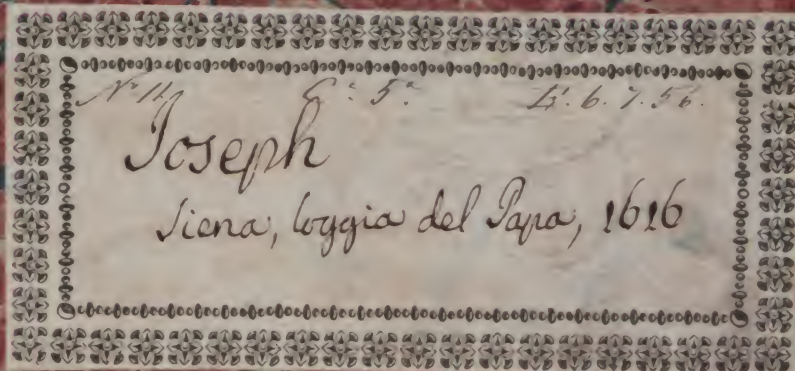 6. 5. L. 6. 7. 56.
Joseph
Siena, loggia del Papa, 1616